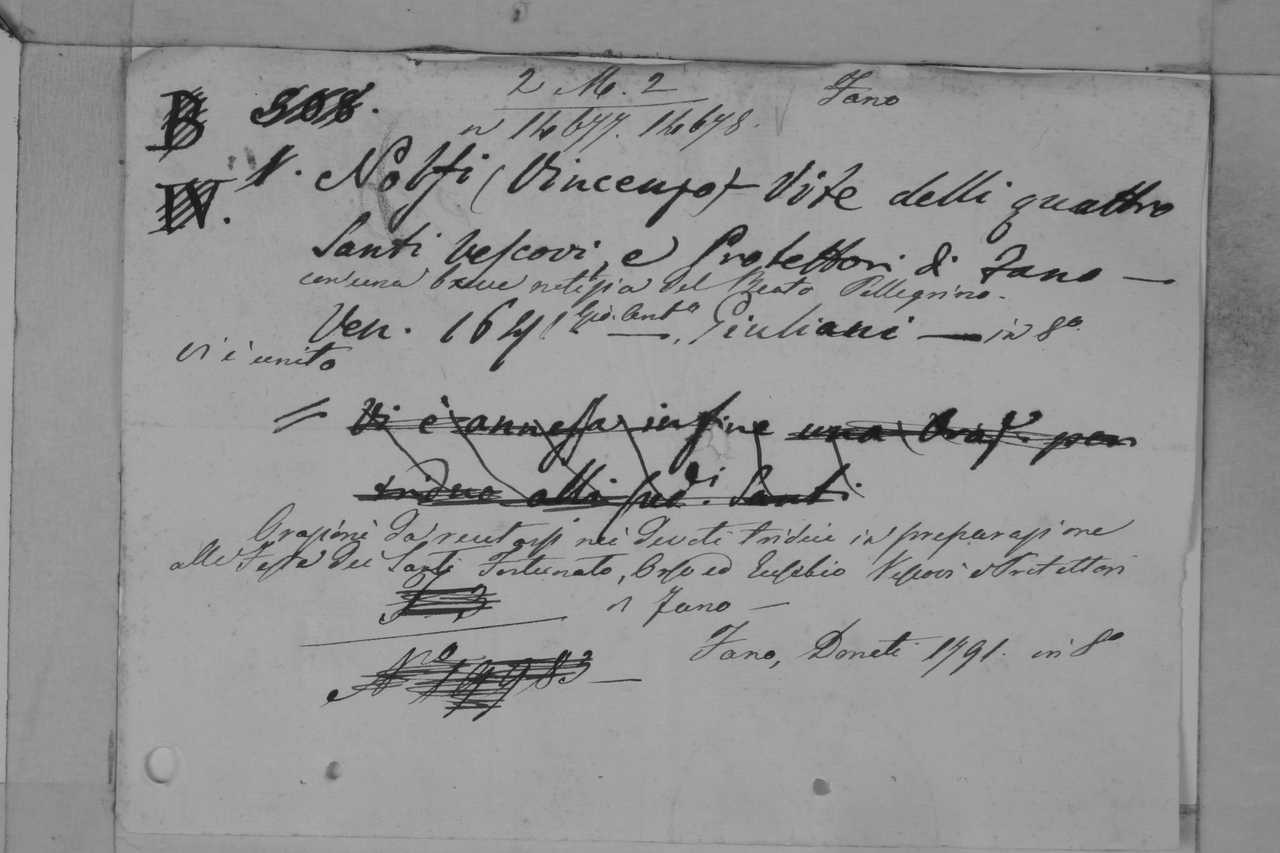 2 M. 2 Fano
n 14677. 14678.
B 508.
IV. V. Nolfi (Vincenzo) Vite delli quattro
Santi Vescovi, e Protettori di Fano —
con una breve notizia del Beato Pellegrino.
Ven. 1641 Gio. Ant.º — Giuliani — in 8º
Vi è unito
= Vi è annessa in fine una Oraz.e per
triduo alli sud.i Santi
Orazioni da recitarsi nei devoti tridui in preparazione
alle Feste dei Santi Fortunato, Orso ed Eusebio Vescovi e Protettori
di Fano —
Fano, Donati 1791. in 8º
Nº 19983 —